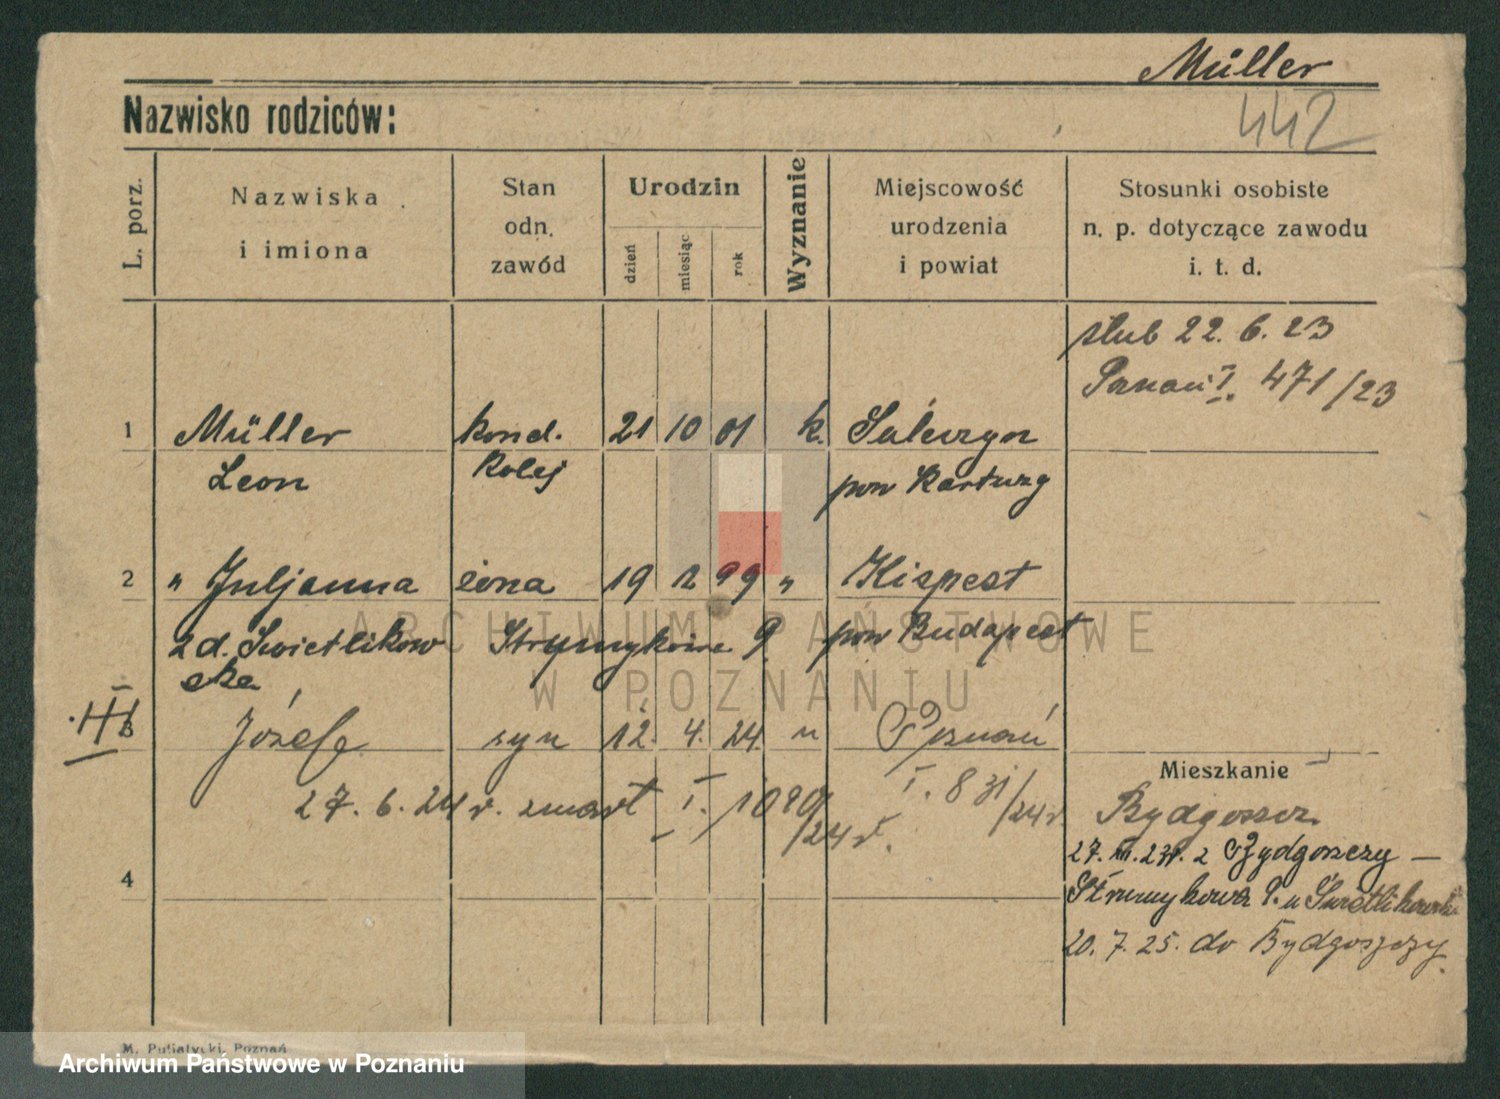 Müller
Nazwisko rodziców:
442
L. porz.
Nazwiska
i imiona
Stan
odn.
zawód
Urodzin
dzień
miesiąc
rok
Wyznanie
Miejscowość
urodzenia
i powiat
Stosunki osobiste
n. p. dotyczące zawodu
i. t. d.
ślub 22. 6. 23
Poznań I. 471/23
1 Müller kond. 21 10 01 k. Sulęczyn
Leon kolej pow Kartuzy
2 " Juljanna żona 19 1 99 " Kispest
z d. Swietlikow Strumykowa 9 pow Budapest
ska
III
3 Józef syn 12. 4. 24 " Poznań
I. 831/24 r.
27. 6. 24 r. zmarł I. 1090/24 r.
Mieszkanie
Bydgoszcz
27. 23 r. z Bydgoszczy —
4
Strumykowa 9. u Świetlikowski
20. 7. 25. do Bydgoszczy.
ARCHIWUM PAŃSTWOWE
W POZNANIU
M. Putiatycki, Poznań
Archiwum Państwowe w Poznaniu